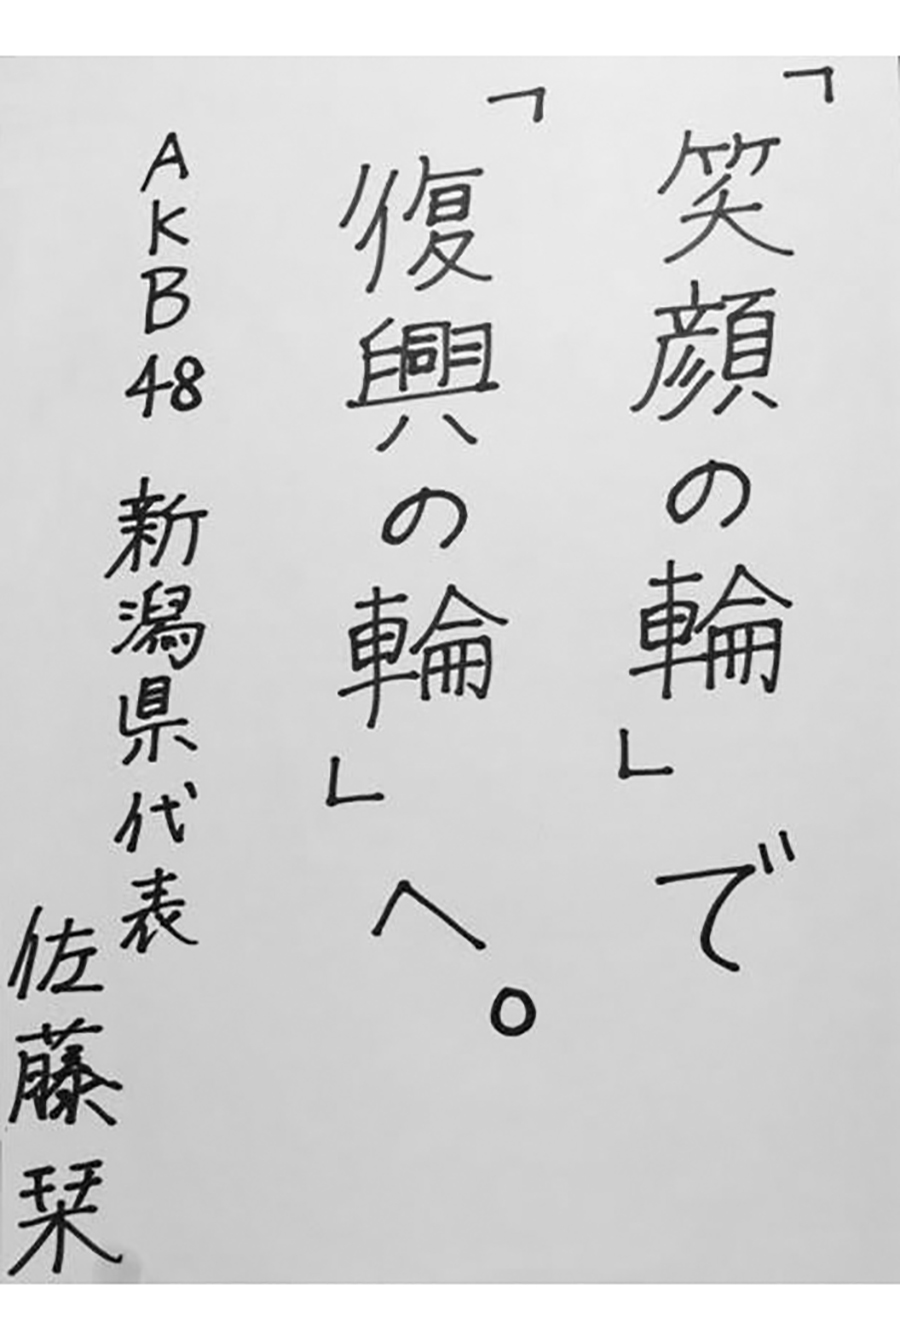 「笑顔の輪」で
「復興の輪」へ。
AKB48 新潟県代表
佐藤栞